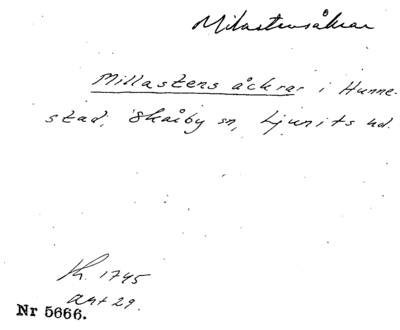 Milastensåkrar
Millastens åckrar i Hunne-
stad, Skårby sn, Ljunits hd.
Kh. 1745
Akt 29.
Nr 5666.